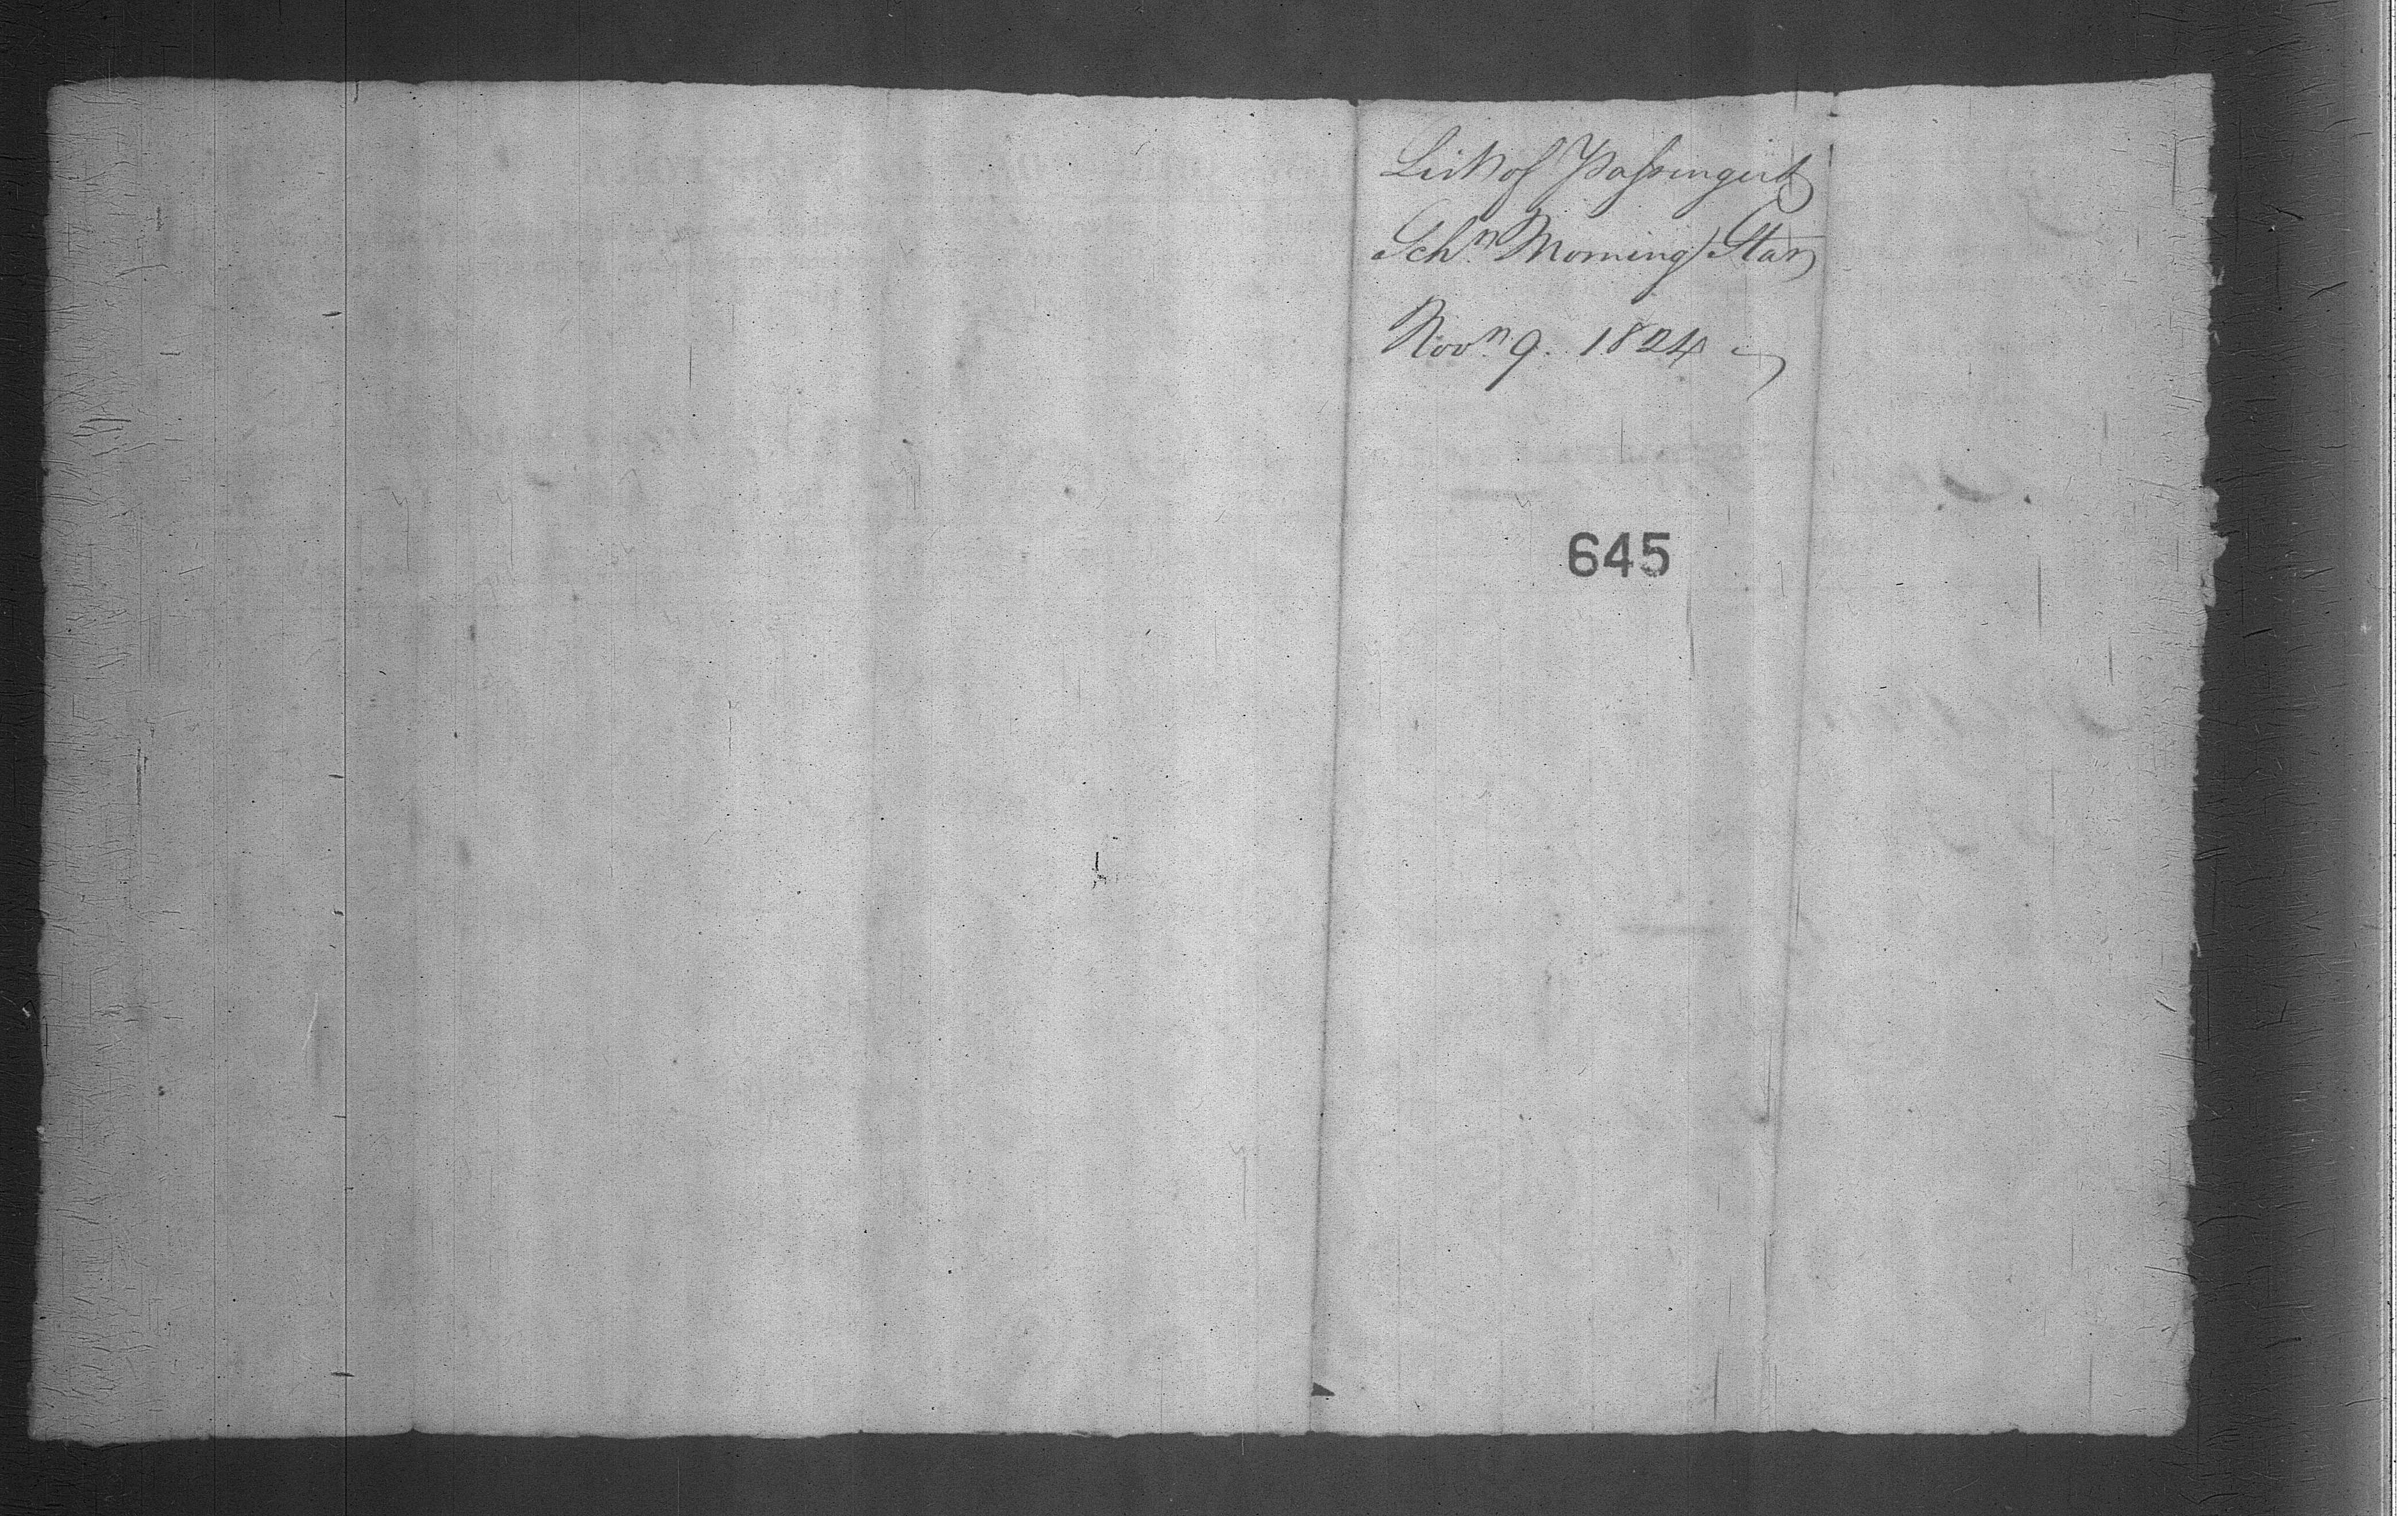 List of Passingers
Schr. Morning Star
Novr. 9. 1824
645